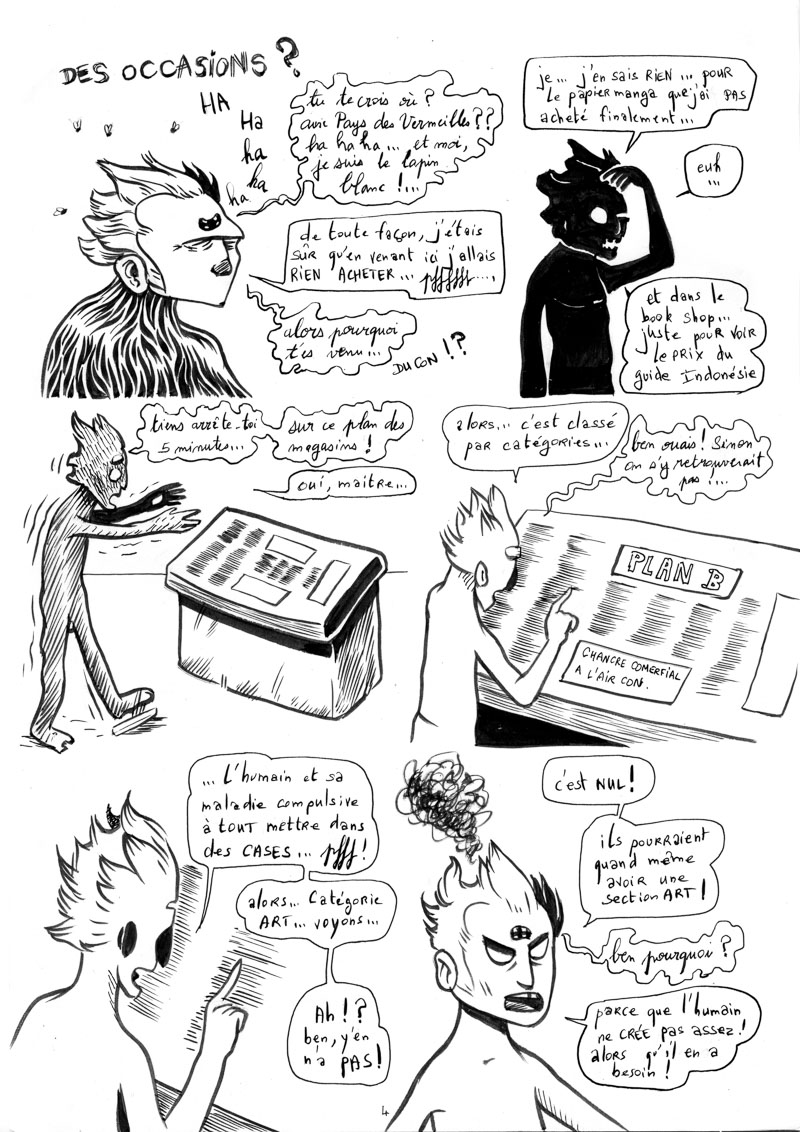 DES OCCASIONS ?
HA
Ha
ha
ha
ha
tu te crois où ?
au Pays des Vermeilles ??
ha ha ha... et moi,
je suis le lapin
blanc !...
de toute façon, j'étais
sûr qu'en venant ici j'allais
RIEN ACHETER... pffffff....
alors pourquoi
t'es venu...
DU CON !?
je... j'en sais RIEN... pour
le papier manga que j'ai PAS
acheté finalement...
euh
...
et dans le
book shop...
juste pour voir
le PRIX du
guide Indonésie
tiens arrête-toi
5 minutes...
sur ce plan des
magasins !
oui, maître...
alors... c'est classé
par catégories...
ben ouais ! Sinon
on s'y retrouverait
pas ....
PLAN B
CHANCRE COMERFIAL
A L'AIR CON.
... L'humain et sa
maladie compulsive
à TOUT mettre dans
des CASES... pfff !
alors... Catégorie
ART... voyons...
Ah !?
ben, y'en
n'a PAS !
c'est NUL !
ils pourraient
quand même
avoir une
section ART !
ben pourquoi ?
parce que l'humain
ne CRÉE pas assez !
alors qu'il en a
besoin !
4